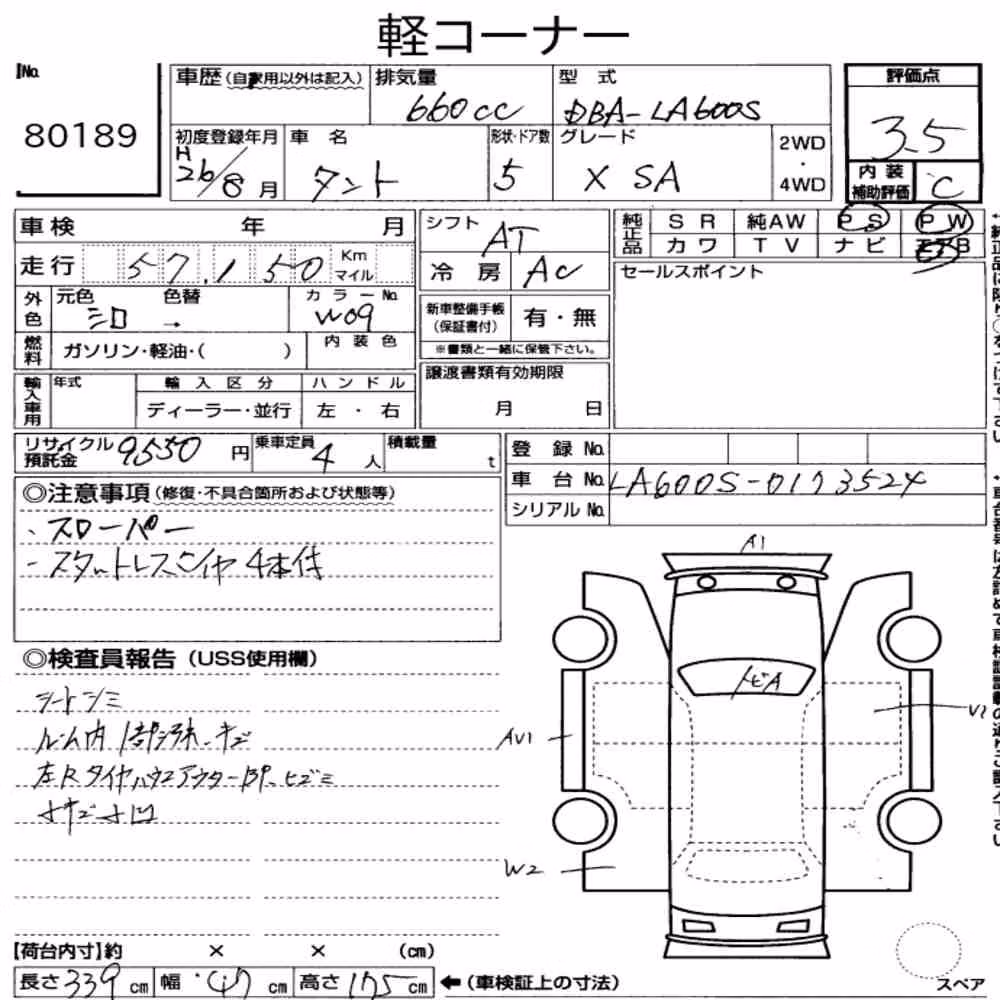 軽コーナー
No.
80189
車歴(自家用以外は記入)
排気量
660cc
型 式
DBA-LA600S
評価点
3.5
初度登録年月
H
26/8月
車 名
タント
形状・ドア数
5
グレード
X SA
2WD
・
4WD
内装
補助評価
C
車検 年 月
シフト
AT
純正品
SR 純AW PS PW
カワ TV ナビ エアB
走行 57,150 Km
マイル
冷 房 AC
セールスポイント
外色
元色 色替
シロ →
カラーNo.
W09
新車整備手帳
(保証書付)
有・無
※書類と一緒に保管下さい。
燃料
ガソリン・軽油・( )
内装色
輸入車用
年式
輸入区分
ハンドル
ディーラー・並行
左・右
譲渡書類有効期限
月 日
リサイクル
預託金
9550円
乗車定員
4人
積載量
t
登 録 No.
車 台 No. LA600S-0173524
シリアル No.
◎注意事項(修復・不具合箇所および状態等)
・スローパー
-スタットレスタイヤ 4本付
◎検査員報告(USS使用欄)
シートシミ
ルーム内
左Rタイヤハウスアウター ヒズミ
A1
トビA
AV1
W2
【荷台内寸】約 × × (cm)
長さ339cm
幅 147cm
高さ175cm
←(車検証上の寸法)
スペア